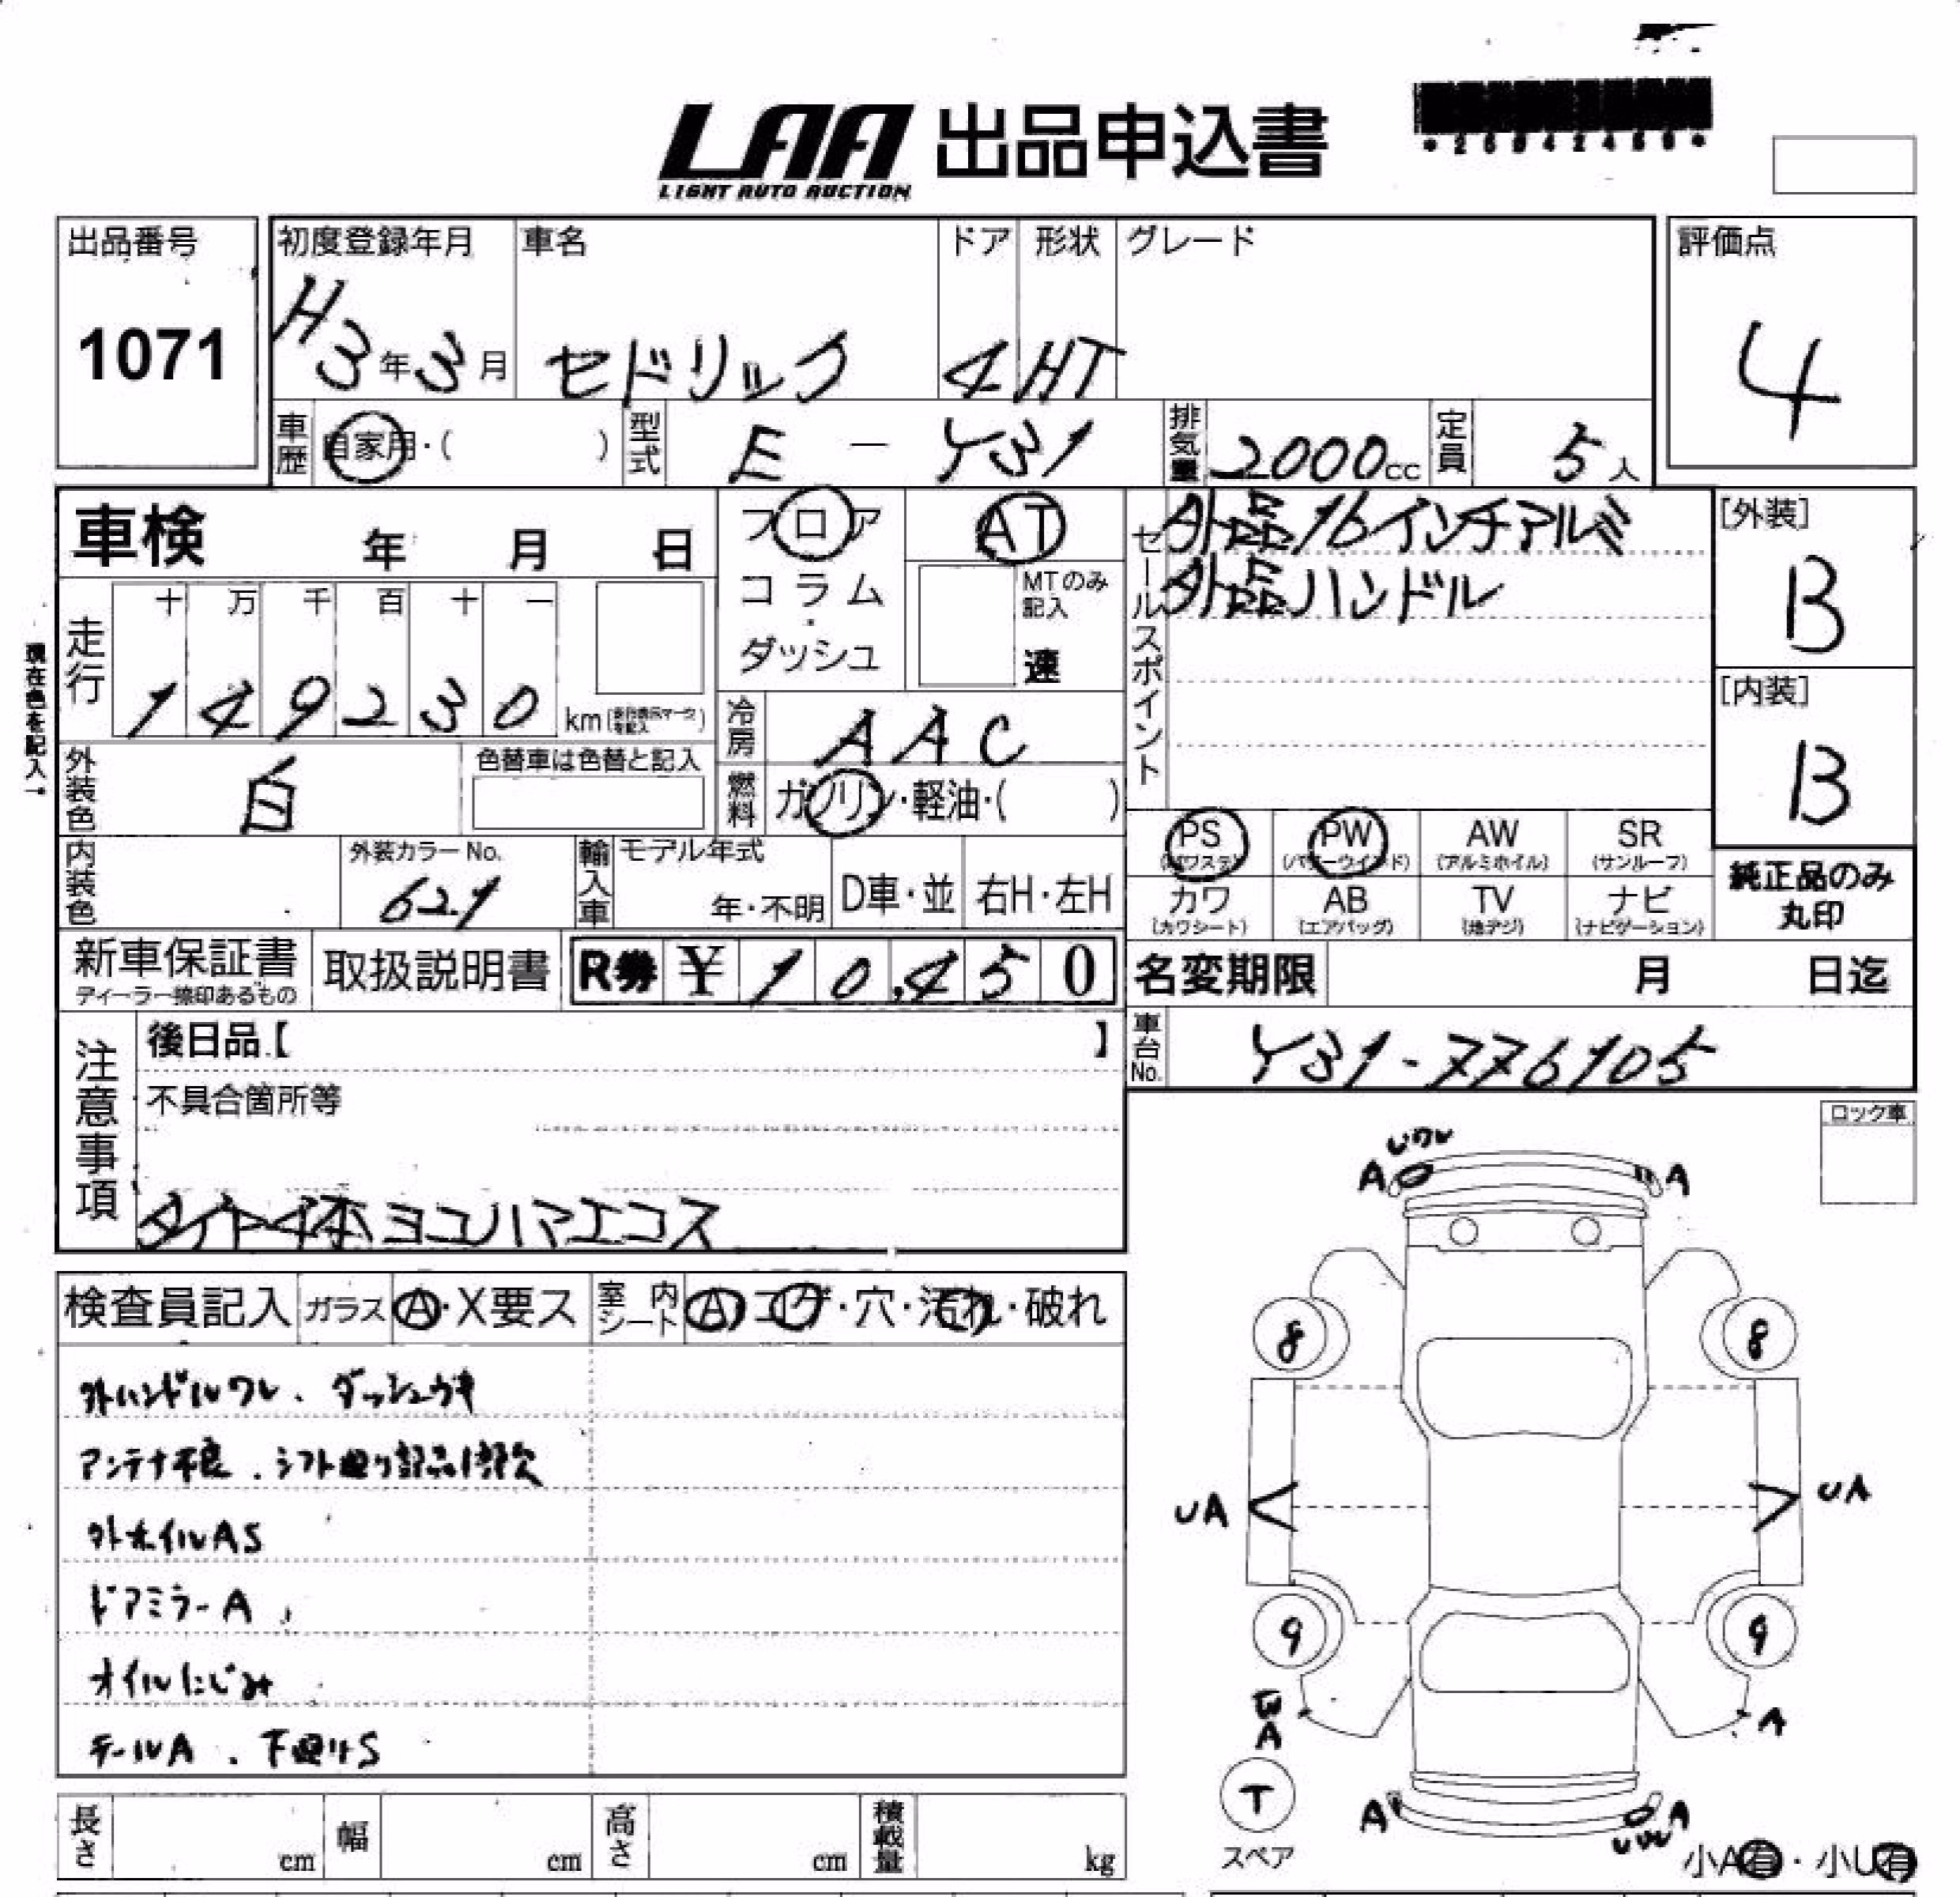 LAA 出品申込書
LIGHT AUTO AUCTION
出品番号
1071
初度登録年月
H3年3月
車名
セドリック
ドア
4
形状
HT
グレード
評価点
4
車歴
自家用・( )
型式
E - Y31
排気量
2000cc
定員
5人
車検 年 月 日
フロア
コラム・
ダッシュ
AT
MTのみ
記入
速
セールスポイント
外品16インチアルミ
外品ハンドル
[外装]
B
[内装]
B
現在色を記入→
走行
十 万 千 百 十 一
1 4 9 2 3 0 km
冷房
AAC
外装色
白
色替車は色替と記入
燃料
ガソリン・軽油・( )
PS
(パワステ)
PW
(パワーウインド)
AW
(アルミホイル)
SR
(サンルーフ)
カワ
(カワシート)
AB
(エアバッグ)
TV
(地デジ)
ナビ
(ナビゲーション)
純正品のみ
丸印
内装色
外装カラーNo.
621
輸入車
モデル年式
年・不明
D車・並
右H・左H
新車保証書
ディーラー捺印あるもの
取扱説明書
R券 ¥ 10,450
名変期限 月 日迄
車台No.
Y31-776105
注意事項
後日品【 】
不具合箇所等
タイヤ4本ヨコハマエコス
ロック車
検査員記入
ガラス
A・X要ス
室内シート
A コゲ・穴・汚れ・破れ
外ハンドルワレ、ダッシュウキ
アンテナ不良、シフト廻り部品1部欠
外ホイルAS
ドアミラーA
オイルにじみ
テールA、下廻りS
長さ cm
幅 cm
高さ cm
積載量 kg
A
A
8
8
UA
UA
9
9
A
A
T
スペア
A
A
小A有・小U有